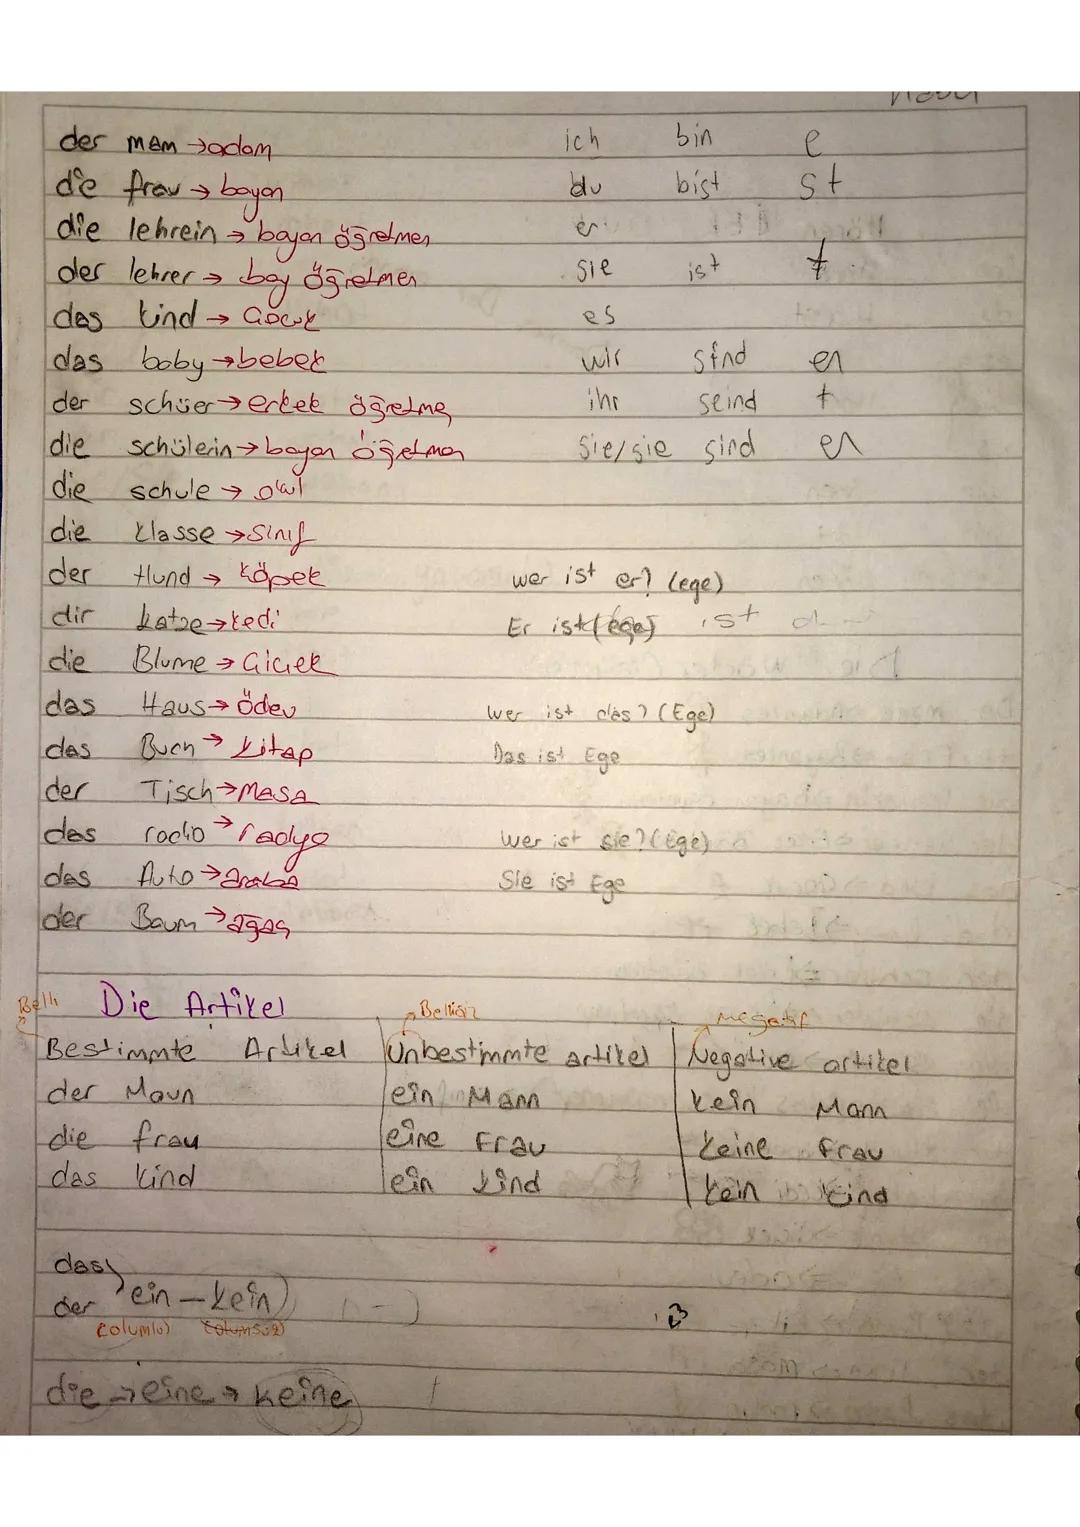 der mam → adam
die frau → bayan
die lehrein → bayan öğretmen
der lehrer → bay öğretmen
das kind → Gocuk
das baby → bebek
der schüer → erkek öğretme
die schülerin → bayan öğetmen
die schule → okul
die klasse → Sınıf
der Hund → köpek
dir katze → kedi
die Blume → Gicek
das Haus → ödev
das Buch → kitap
der Tisch → Masa
das radio → radyo
das Auto → araba
der Baum → ağaç
ich bin e
du bist st
er
sie ist t
es
wir sind en
ihr seind t
Sie/sie sind en
wer ist er? (ege)
Er ist (ege) ist
wer ist das? (Ege)
Das ist Ege
wer ist sie? (Ege)
Sie ist Ege
Belli Die Artikel Bellisiz Negatif
Bestimmte Artikel Unbestimmte artikel Negative artikel
der Maun ein Mann kein Mann
die frau eine Frau keine Frau
das kind ein kind kein kind
das
ein – kein
der
die → eine → keine